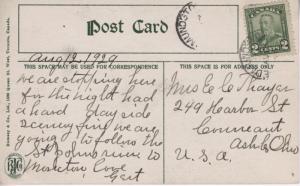 Post Card
THIS SPACE MAY BE USED FOR CORRESPONDENCE
THIS SPACE IS FOR ADDRESS ONLY
Aug 12, 1929
we are stopping here
for the night had
a hard day side
scenery fine we are
going to follow the
St Johns river to
Moncton Cove
Gert
Mrs E C Thayer
249 Harbor St
Conneaut
Ashta Ohio
U.S.A.
2 CENTS 2